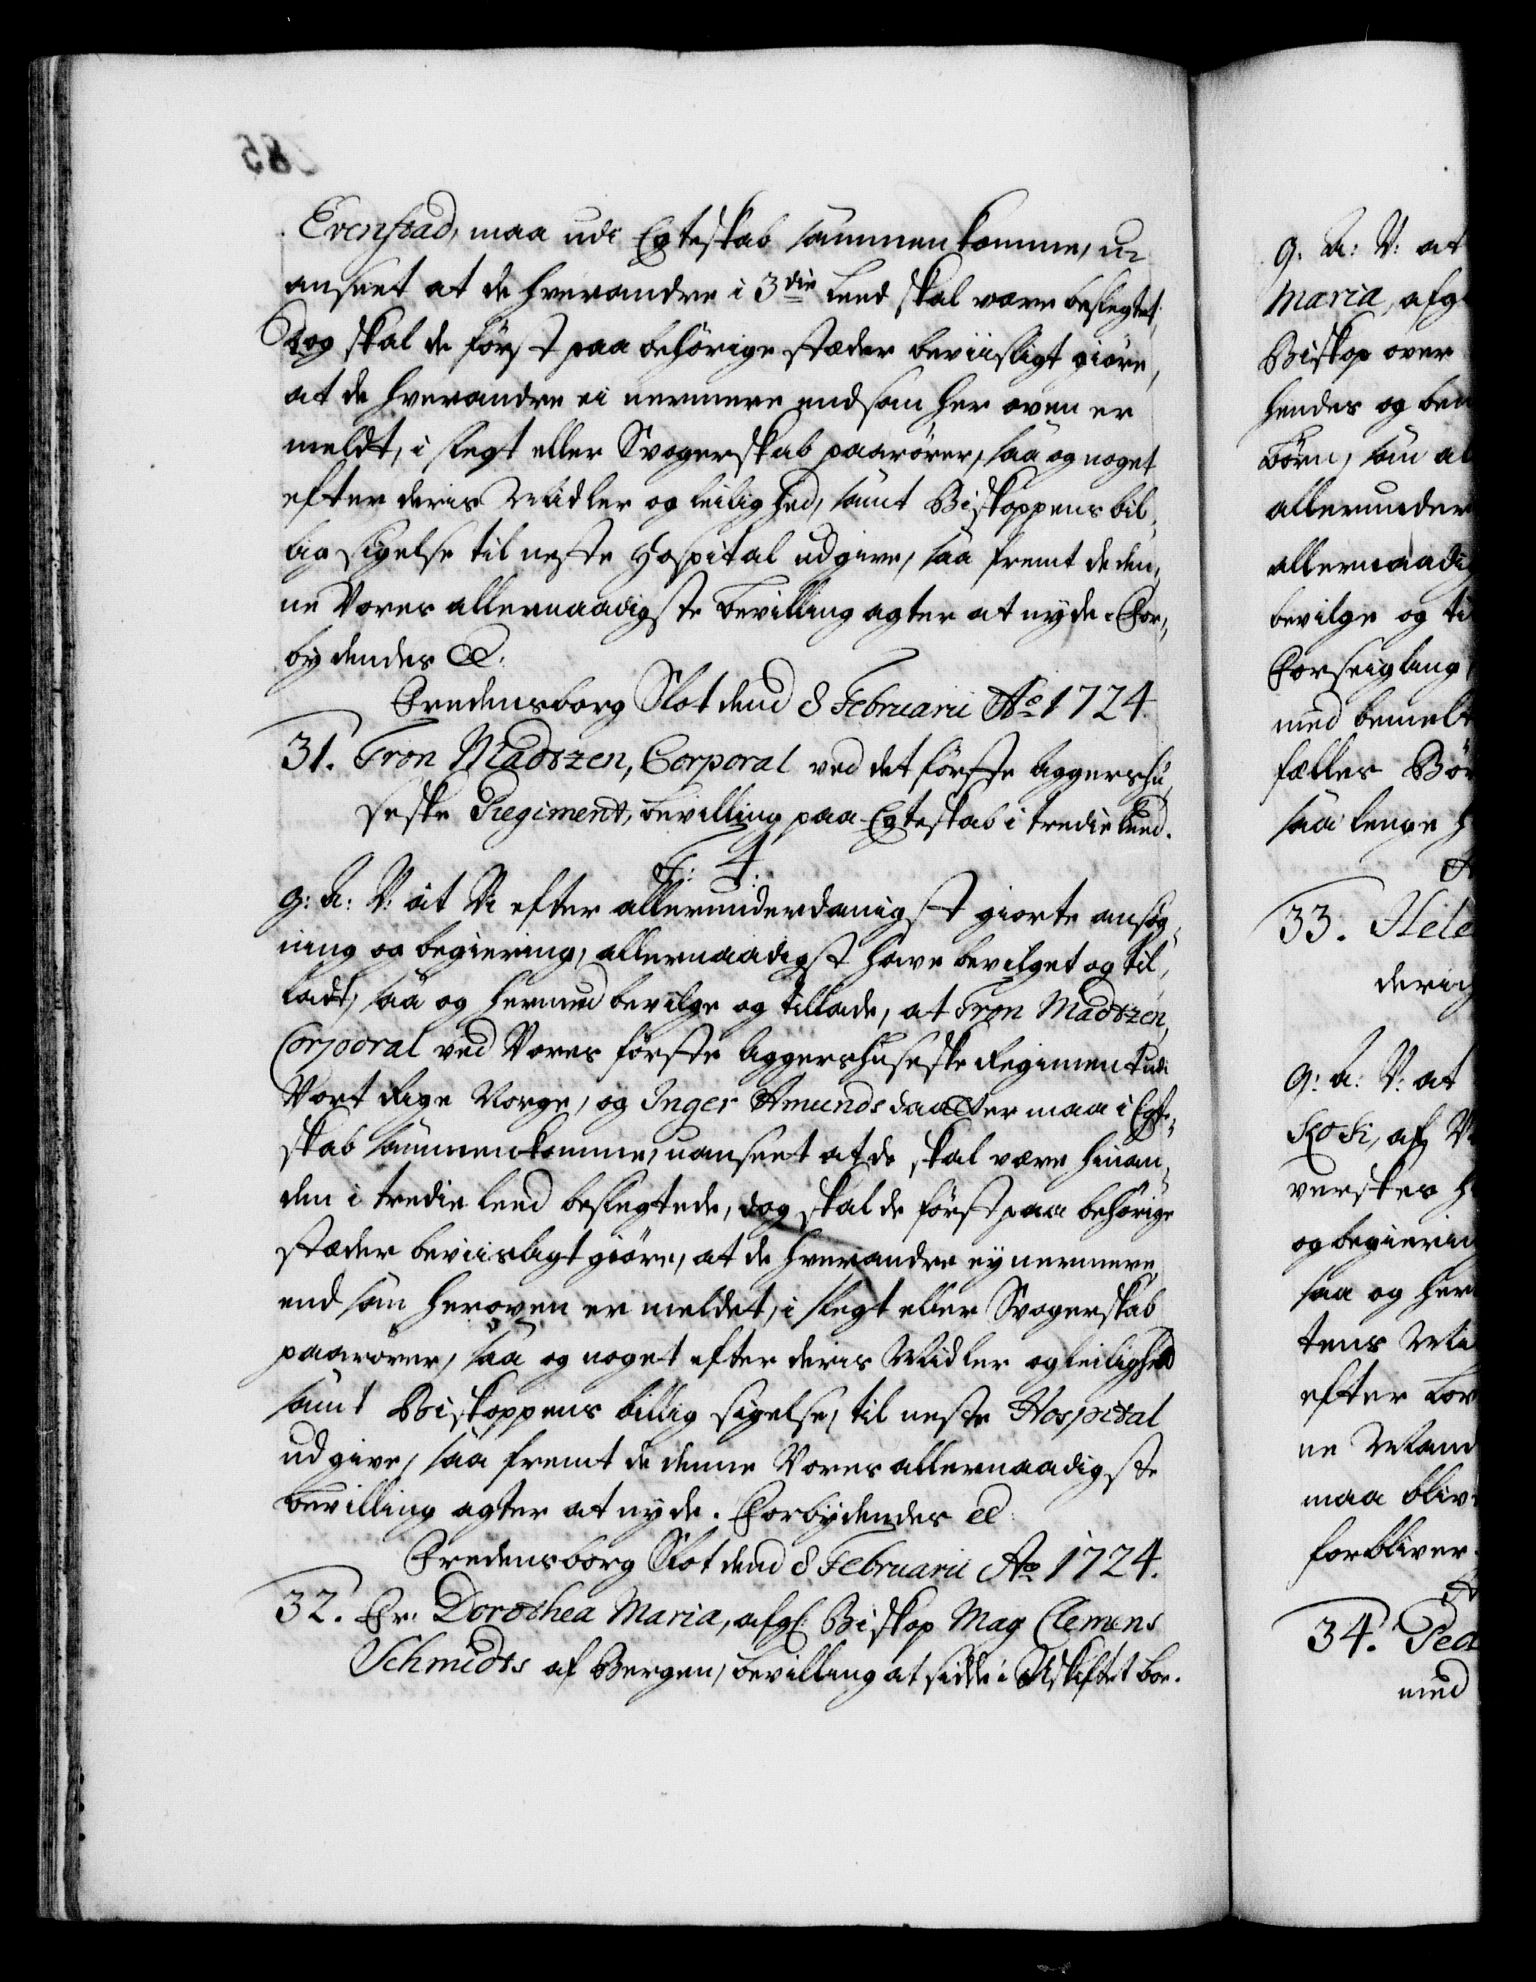 Evenstad, maa udi Egteskab sammenkomme, u-
anseet at de hverandre i 3die leed skal være beslegtet;
Dog skal de först paa behörige stæder beviisligt giöre,
at de hverandre ei nermere end som her oven er
meldt, i slegt eller Svogerskab paarörer, saa og noget
efter deris Midler og leilighed, samt Biskoppens bil-
lig sigelse til neste Hospital udgive, saa fremt de den-
ne Vores allernaadigste bevilling agter at nyde. For-
bydendes &:
Fredensborg Slot dend 8 Februarii Ao 1724.
31. Tron Madszen, Corporal ved det förste Aggershu-
seske Regiment, bevilling paa Egteskab i tredie leed.
F: 4.
G: A: V: at Vi efter allerunderdanigst giorte ansög-
ning og begiering, allernaadigst have bevilget og til-
ladt, saa og hermed bevilge og tillade, at Tron Madszen,
Corporal ved Vores förste Aggershuseske Regiment udi
Vort Rige Norge, og Inger Amundsdaatter maa i Egte-
skab sammenkomme, uanseet at de skal være hinan-
den i tredie leed beslegtede, dog skal de först paa behörige
stæder beviisligt giöre, at de hverandre ey nermere
end som heroven er meldet, i slegt eller Svogerskab
paarörer, saa og noget efter deris Midler og leilighed
samt Biskoppens billig sigelse, til neste Hospital
udgive, saa fremt de denne Vores allernaadigste
bevilling agter at nyde. Forbydendes &
Fredensborg Slot dend 8 Februarii Ao 1724.
32. Fr: Dorothea Maria, afg: Biskop Mag Clemens
Schmidts af Bergen, bevilling at sidde i Uskiftet boe.
G: A: V: at
Maria, afg
Biskop over
hendes og ben
börn, som al
allerunder
allernaadi
bevilge og ti
Forseigling
med bemelt
fælles Bör
saa lenge h
33. Hele
derig
G: A: V: at
verskes h
og begierin
saa og her
tens Mi
efter Lov
ne Mand
maa bliv
forbliver
34. Ped
med